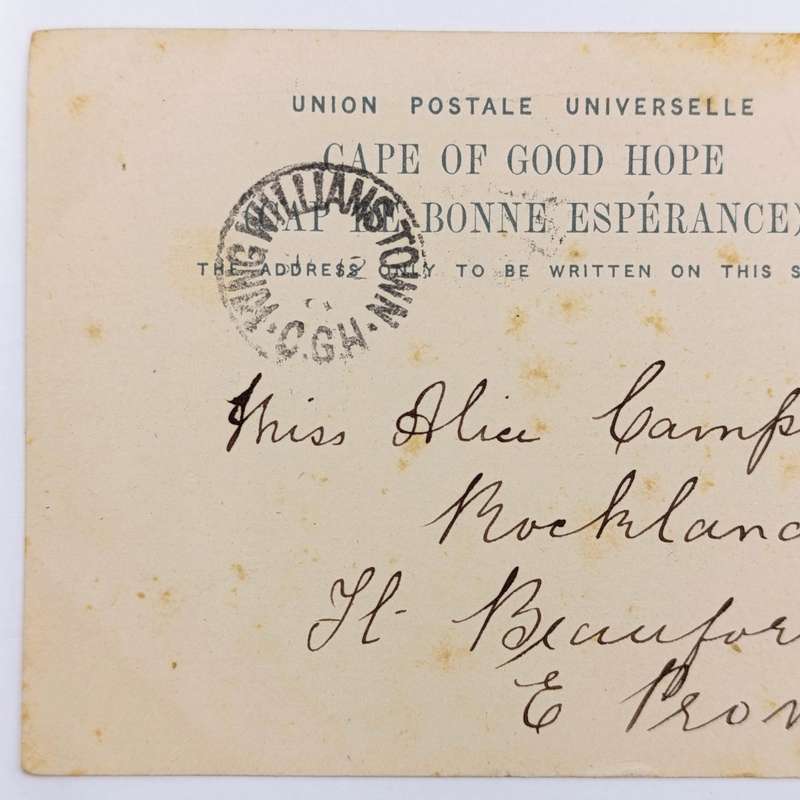 UNION POSTALE UNIVERSELLE
CAPE OF GOOD HOPE
(CAP DE BONNE ESPÉRANCE)
THE ADDRESS ONLY TO BE WRITTEN ON THIS S
KING WILLIAMS TOWN
C.G.H.
Miss Alice Camp
Rockland
Ft. Beaufor
E Prov